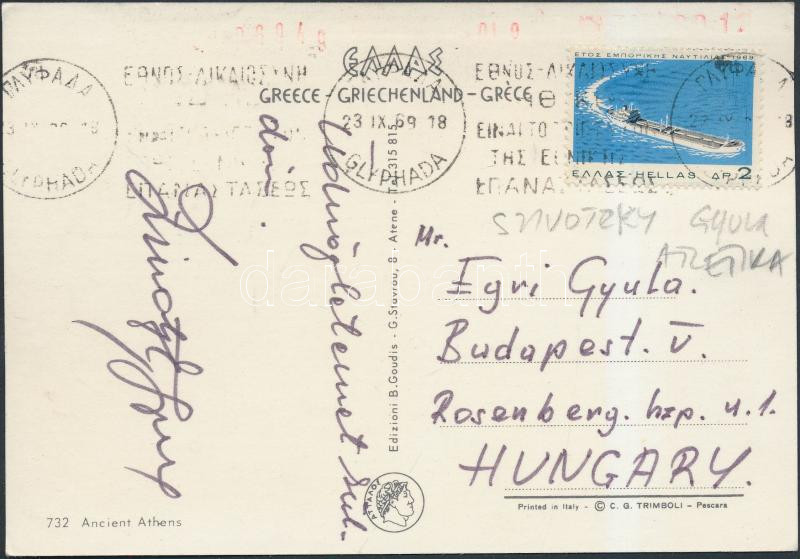 ΕΛΛΑΣ
GREECE - GRIECHENLAND - GRÈCE
ΓΛΥΦΑΔΑ
GLYPHADA
ΕΘΝΟΣ-ΔΙΚΑΙΟΣΥΝΗ
ΕΠΑΝΑΣΤΑΣΕΩΣ
23 IX 69 18
GLYPHADA
ΕΘΝΟΣ-ΔΙΚΑΙΟΣΥΝΗ
ΕΙΝΑΙ ΤΟ
ΤΗΣ ΕΘΝΙΚΗΣ
ΕΠΑΝΑΣΤΑΣΕΩΣ
ΓΛΥΦΑΔΑ
ΕΤΟΣ ΕΜΠΟΡΙΚΗΣ ΝΑΥΤΙΛΙΑΣ 1969
ΕΛΛΑΣ-HELLAS ΔΡ 2
Üdvözletemet kül-
döm.
Edizioni B.Goudis - G.Stavrou, 8 - Atene - Tel. 315815
Gyula
ATLETIKA
Mr.
Egri Gyula.
Budapest. V.
Rosenberg. hzp. u. 1.
HUNGARY.
ΑΤΤΑΛΟΥ
732 Ancient Athens
Printed in Italy - © C. G. TRIMBOLI - Pescara
darabanth